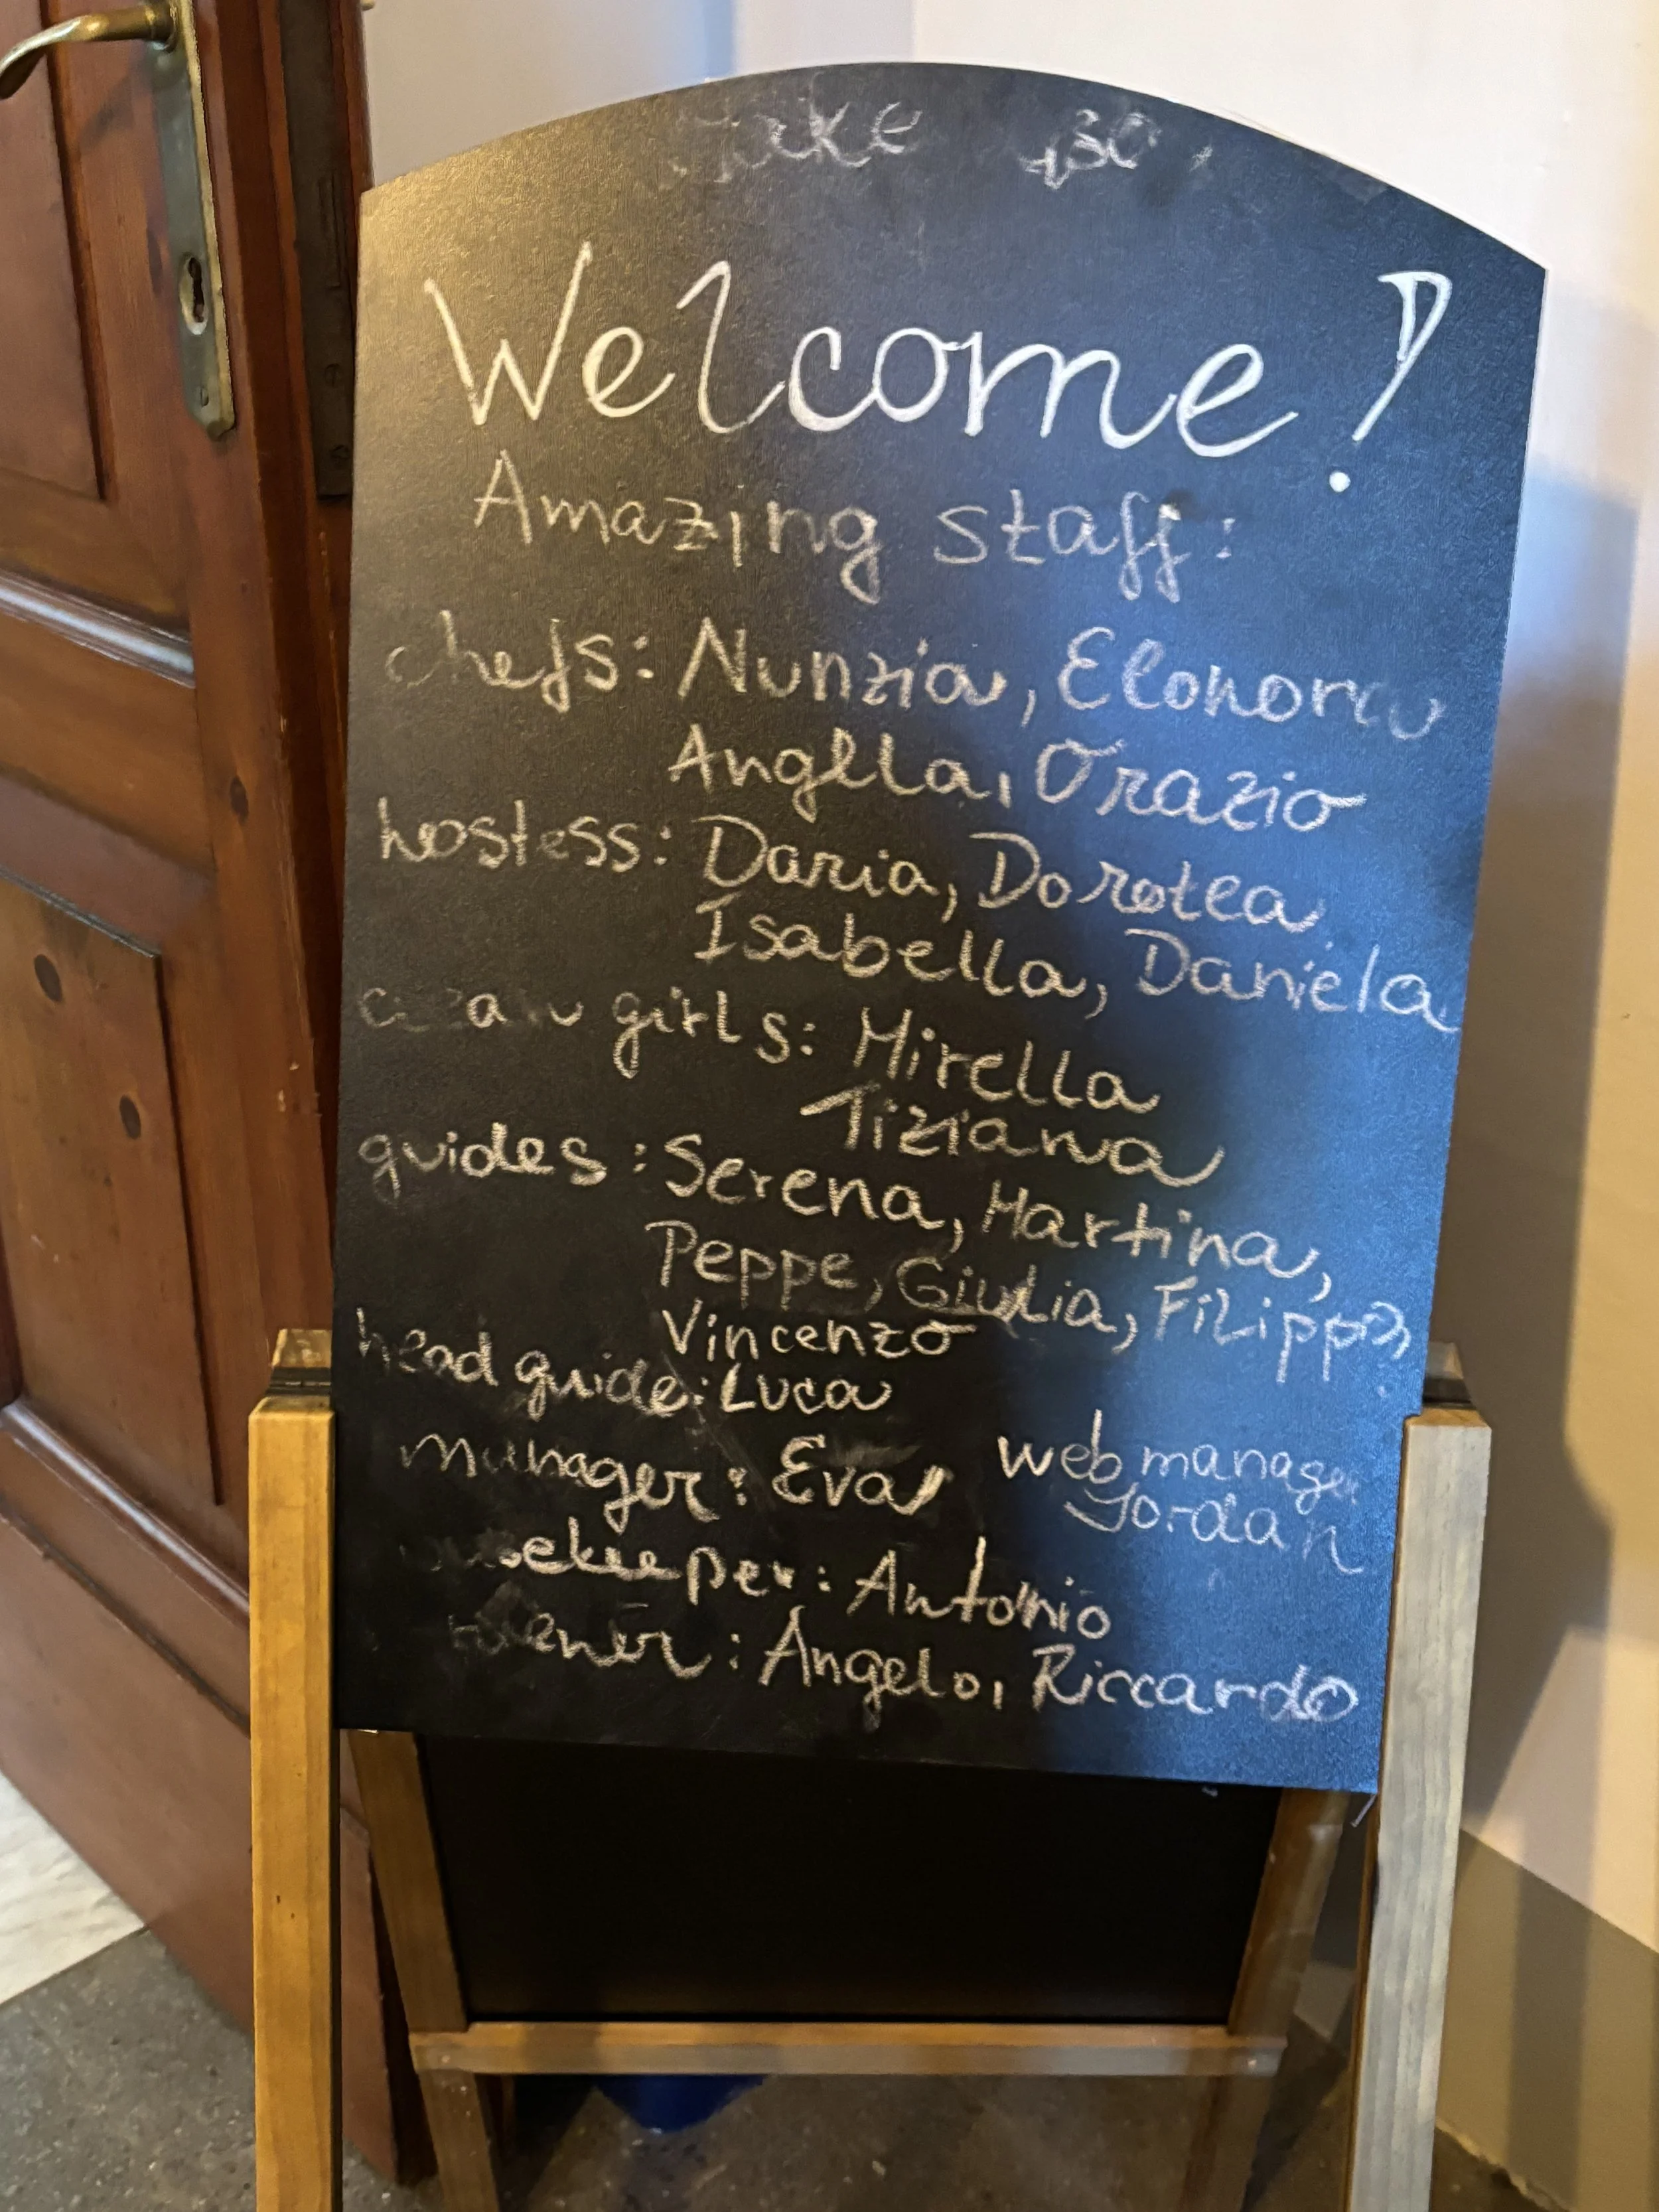 Welcome!
Amazing staff:
chefs: Nunzia, Elonora
Angela, Orazio
hostess: Daria, Dorotea
Isabella, Daniela
girls: Mirella
Tiziana
guides: Serena, Martina,
Peppe, Giulia, Filippo,
Vincenzo
head guide: Luca
manager: Eva
web manager
Jordan
: Antonio
: Angelo, Riccardo